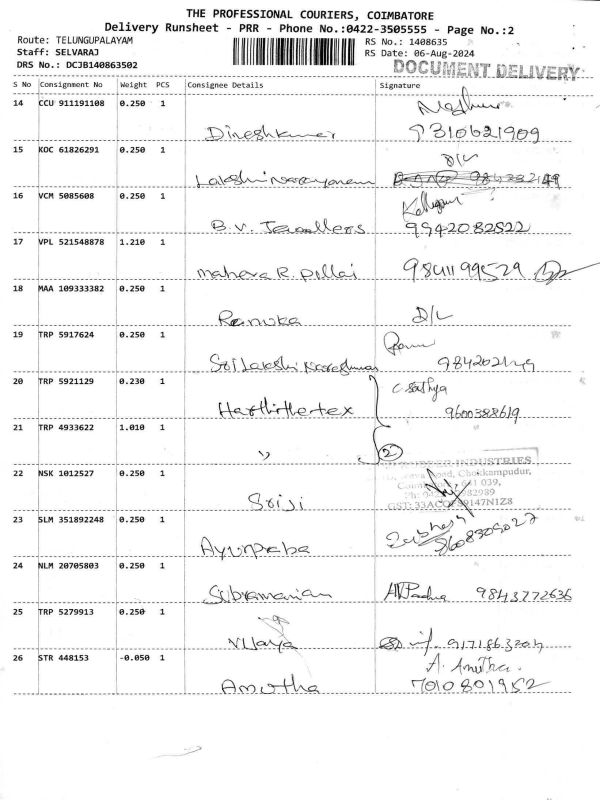 THE PROFESSIONAL COURIERS, COIMBATORE
Delivery Runsheet - PRR - Phone No.:0422-3505555 - Page No.:2
Route: TELUNGUPALAYAM
RS No.: 1408635
Staff: SELVARAJ
RS Date: 06-Aug-2024
DRS No.: DCJB140863502
DOCUMENT DELIVERY
S No Consignment No Weight PCS Consignee Details Signature
14 CCU 911191108 0.250 1
Dineshkumar 9310621909
15 KOC 61826291 0.250 1 D/L
Lakshinarayanan
16 VCM 5085608 0.250 1
B.V. Jewellers 9942082522
17 VPL 521548878 1.210 1
Maheva R. Pillai 9841199529
18 MAA 109333382 0.250 1
Renuka D/L
19 TRP 5917624 0.250 1
20 TRP 5921129 0.230 1 C. Sathya
9600388619
21 TRP 4933622 1.010 1
" 2
INDUSTRIES
Road, Chokkampudur,
641 039,
22 NSK 1012527 0.250 1
Sriji
23 SLM 351892248 0.250 1
9608309027
24 NLM 20705803 0.250 1
Subramanian 9843772636
25 TRP 5279913 0.250 1
Vijaya
26 STR 448153 -0.050 1 A. Amutha.
Amutha 7010801952